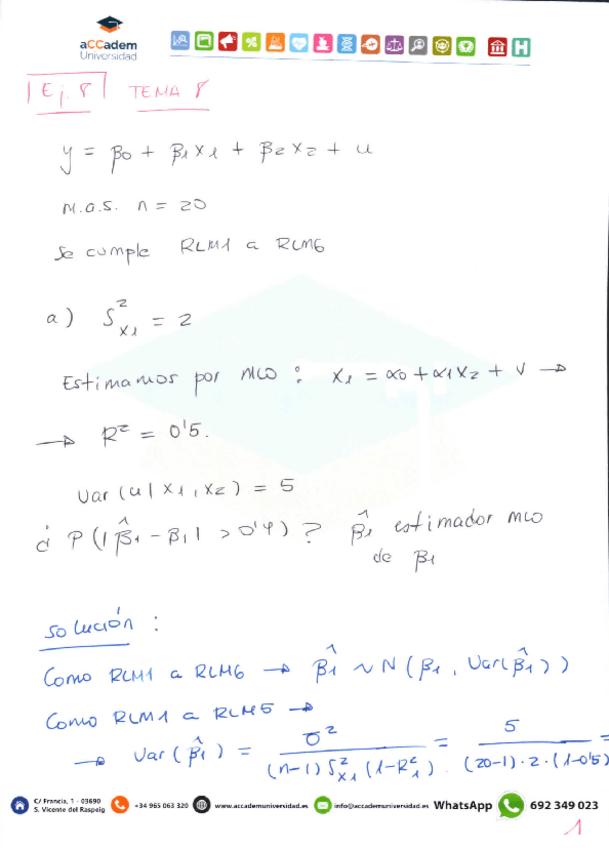 aCCadem
Universidad
Ej. 8 TEMA 8
y = β0 + β1x1 + β2x2 + u
m.a.s. n = 20
Se cumple RLM1 a RLM6
a) S²x1 = 2
Estimamos por MCO : x1 = α0 + α1x2 + v →
→ R² = 0'5.
Var (u | x1, x2) = 5
¿ P (| β̂1 - β1 | > 0'4) ? β̂1 estimador MCO
de β1
Solución :
Como RLM1 a RLM6 → β̂1 ~ N (β1, Var(β̂1))
Como RLM1 a RLM5 →
→ Var (β̂1) = σ² / (n-1) S²x1 (1-R²1) = 5 / (20-1) · 2 · (1-0'5) =
C/ Francia, 1 - 03690
S. Vicente del Raspeig
+34 965 063 320
www.accademuniversidad.es
info@accademuniversidad.es
WhatsApp
692 349 023
1